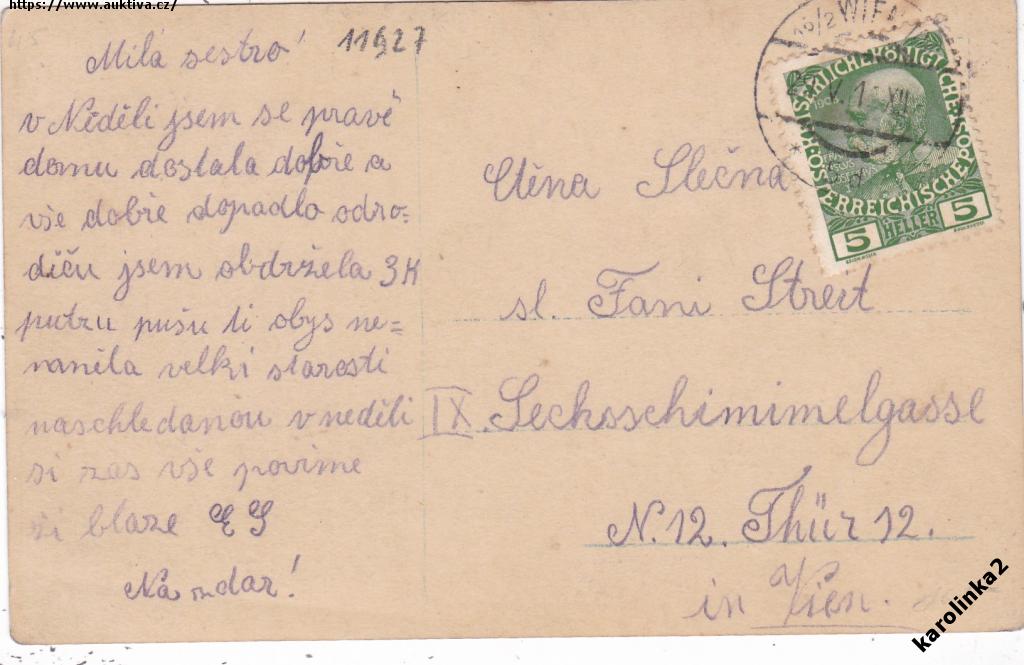 https://www.auktiva.cz/
11927
Milá sestro!
v Néděli jsem se pravě
domu dostala dobře a
vše dobře dopadlo odro-
dičů jsem obdržela 3K
putzu pušu ti obys ne=
maněla velki starosti
naschledanou v neděli
si zas vše povíme
blaze
Na zdar!
Ctěna Slečna
sl. Fani Strert
IX Sechsschimimelgasse
N. 12. Thür 12.
in Vien.
WIEN
KAISERLICHE KÖNIGLICHE
ÖSTERREICHISCHE POST
1908
5 HELLER 5
karolinka2